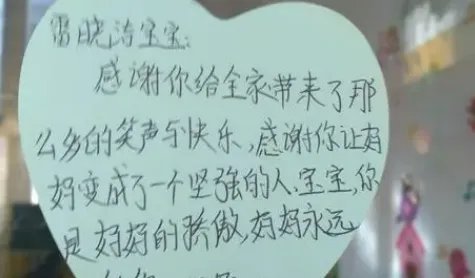 雷晓诗宝宝:
感谢你给全家带来了那
么多的笑声与快乐,感谢你让妈
妈变成了一个坚强的人.宝宝,你
是妈妈的骄傲,妈妈永远